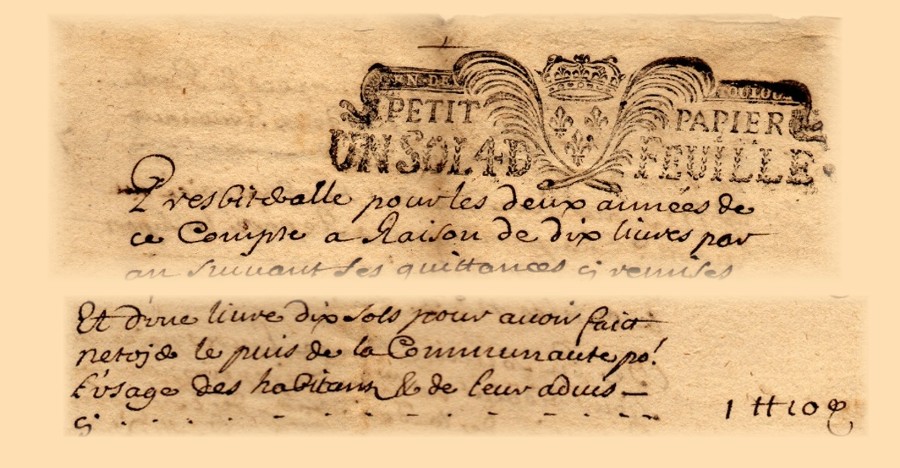 GEN. DE TOULOU
PETIT PAPIER
UN SOL 4 D FEUILLE
Presbiteralle pour les deux années de
ce Compte a Raison de dix livres par
an suivant ses quittances cy remises
Et d'une livre dix sols pour avoir fait
netoje le puis de la Communaute po.
l'usage des habitans & de leur advis —
cy - - - - - - - - - - 1 ₶ 10 s